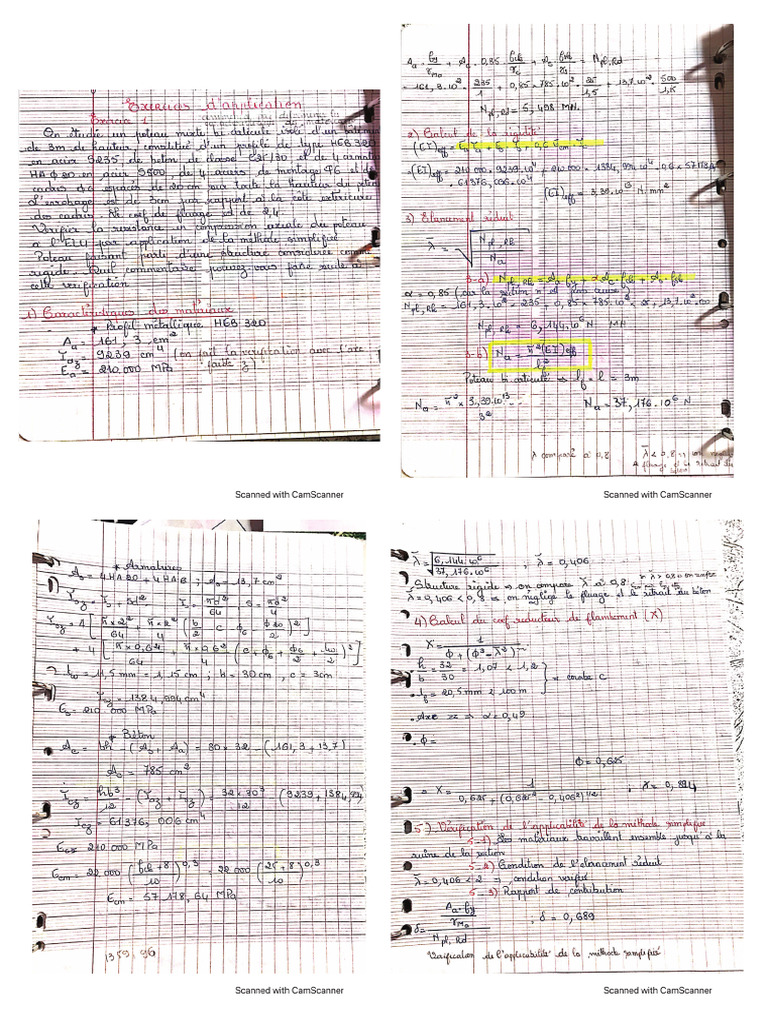 Exercices d'application
Exercice 1
On étudie un poteau mixte bi articulé isolé d'un bâtiment
de 3m de hauteur, constitué d'un profilé de type HEB 320
en acier S235, de béton de classe C25/30 et de 4 armatures
HAΦ20 en acier S500, de 4 aciers de montage Φ6 et de
cadres Φ6 espacés de 20cm sur toute la hauteur du poteau
L'enrobage est de 3cm par rapport à la côte extérieure
des cadres. Le coef de fluage est de 2,4.
Vérifier la résistance en compression axiale du poteau
à l'ELU par application de la méthode simplifiée.
Poteau faisant partie d'une structure considérée comme
rigide. Quel commentaire pouvez-vous faire suite à
cette vérification
1) Caractéristiques des matériaux
* Profil métallique HEB 320
Aa = 161,3 cm²
Iaz = 9239 cm⁴ (on fait la vérification avec l'axe
faible z)
Ea = 210.000 MPa
Aa · fy/γMa + Ac · 0,85 · fck/γc + As · fsk/γs = Npl,Rd
= 161,3·10² · 235/1 + 0,85 × 785·10² · 25/1,5 + 13,7·10² · 500/1,15
Npl,Rd = 5,498 MN
2) Calcul de la rigidité
(EI)eff = Ea Ia + Es Is + 0,6 Ecm Ic
(EI)eff = 210.000 × 9239·10⁴ + 210.000 × 1384,994·10⁴ + 0,6 × 57178,64
× 61376,006·10⁴
(EI)eff = 3,39·10¹³ N·mm²
3) Elancement réduit
λ̄ = √(Npl,Rk / Na)
3-a) Npl,Rk = Aa·fy + αAc·fck + As·fsk
α = 0,85
Npl,Rk = 161,3·10² × 235 + 0,85 × 785·10² × 25 + 13,7·10² · 500
Npl,Rk = 6,144·10⁶ N
MN
3-b) Na = π²(EI)eff / lf²
Poteau bi articulé ⇒ lf = l = 3m
Na = π² × 3,39·10¹³ / 3²
Na = 37,176·10⁶ N
λ comparé à 0,8
λ̄ < 0,8
* Armatures
As = 4HA20 + 4HA6 ; As = 13,7 cm²
Isz = Is + Sd² Is = πd⁴/64 , S = πd²/4
Isz = 4[π×2⁴/64 + π×2²/4 (b/2 - c - Φ6 - Φ20/2)²]
+ 4[π×0,6⁴/64 + π×0,6²/4 (c + Φ6 + Φ6/2 + tw/2)²]
tw = 11,5 mm = 1,15 cm ; b = 30 cm , c = 3cm
Isz = 1384,994 cm⁴
Es = 210 000 MPa
* Béton
Ac = bh - (As + Aa) = 30 × 32 - (161,3 + 13,7)
Ac = 785 cm²
Icz = hb³/12 - (Iaz + Isz) = 32×30³/12 - (9239 + 1384,994)
Icz = 61376,006 cm⁴
Es = 210000 MPa
Ecm = 22000 (fck+8/10)^0,3 = 22000 (25+8/10)^0,3
Ecm = 57 178,64 MPa
1359,96
λ̄ = √(6,144·10⁶ / 37,176·10⁶) ; λ̄ = 0,406
Structure rigide ⇒ on compare λ̄ à 0,8
λ̄ = 0,406 < 0,8 ⇒ on néglige le fluage et le retrait du béton
4) Calcul du coef réducteur de flambement (X)
X = 1 / (Φ + (Φ² - λ̄²)^1/2)
h/b = 32/30 = 1,07 < 1,2
tf = 20,5 mm ≤ 100 m
} ⇒ courbe C
• Axe zz ⇒ α = 0,49
• Φ =
Φ = 0,625
⇒ X = 1 / (0,625 + (0,625² - 0,406²)^1/2) ; X = 0,894
5-) Vérification de l'applicabilité de la méthode simplifiée
5-1) Les matériaux travaillent ensemble jusqu'à la
ruine de la section
5-2) Condition de l'élancement réduit
λ̄ = 0,406 < 2 ⇒ condition vérifiée
5-3) Rapport de contribution
δ = (Aa·fy / γMa) / Npl,Rd ; δ = 0,689
Vérification de l'applicabilité de la méthode simplifiée
Scanned with CamScanner
Scanned with CamScanner
Scanned with CamScanner
Scanned with CamScanner